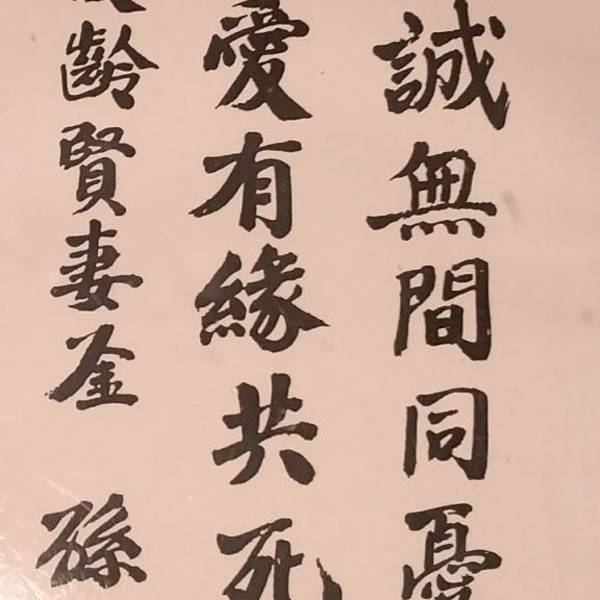 誠無間同憂
愛有緣共死
齡賢妻 孫